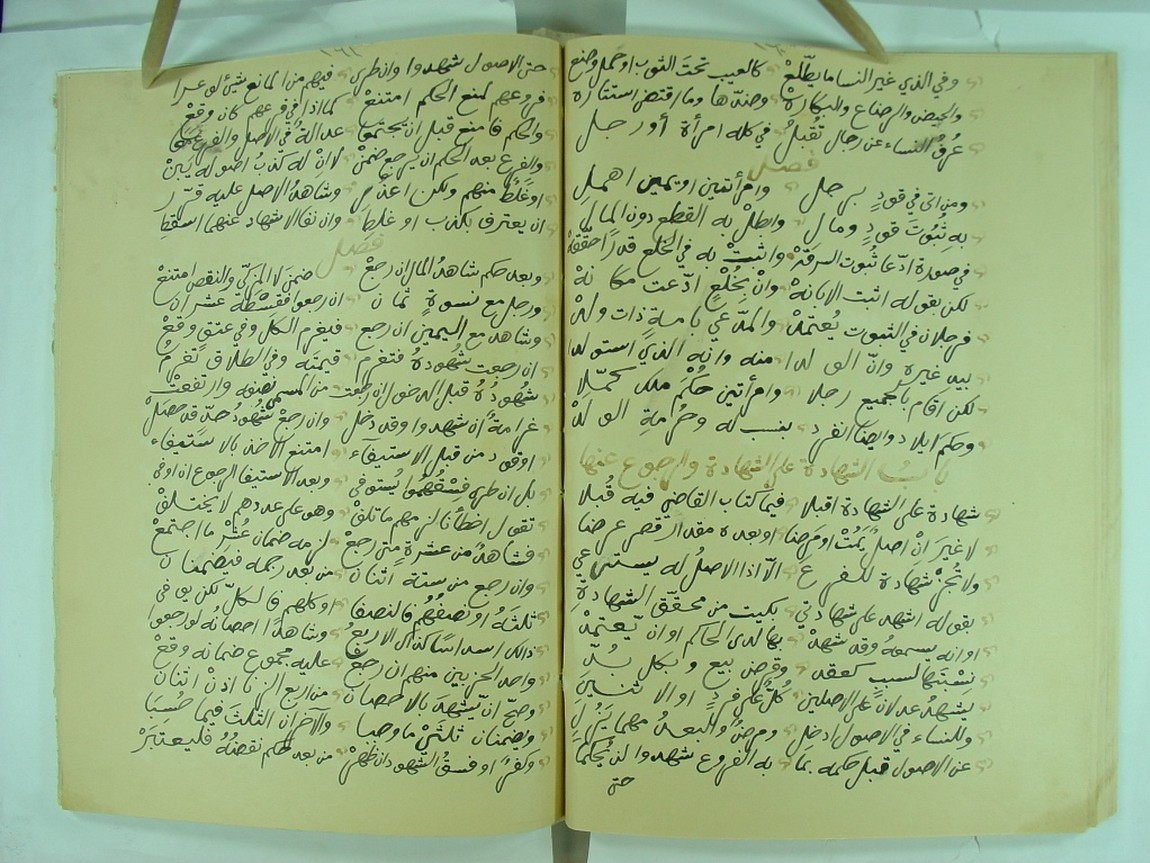 وفي الذي غير النسا ما يطّلعْ كالعيب تحتَ الثوب او حمل وضع
والحيض والرضاع والبكارة وضدّها وما اقتضى استتاره
عُرفُ النساء عن رجال تُقبلُ في كله امرأة أو رجل
فصل
ومن اتى في قودٍ برجل وامرأتين او يمين اهمل
به ثبُوتَ قودٍ ومال وابطلْ به القطع دون المال
في صورة ادّعا ثبوت السرقة واثبتْ به في الخلع قدراً حققهْ
لكن بقوله اثبت الابانهْ وانْ بخُلْعٍ ادّعت مكانهْ
فرجلان في الثبوت يُعتمدْ والمدّعي بامةٍ ذات ولدْ
بيد غيره وانّ الولدا منه وانه الذي استولدا
لكن اقام بالجميع رجلا وامرأتين حُكْمَ ملك كمّلا
وحكم ايلاد وايضا انفرد بنسب له وحُرّمةِ الولدْ
بابُ الشهادة على الشهادة والرجوع عنها
شهادة على الشهادة اقبلا فيما كتاب القاضي فيه قُبلا
لا غيرَ انْ اصلٌ يَمُتْ او مرضا او بعده مقدار قصر عرضا
ولا تُجزْ شهادة للفرع الّا اذا الاصلُ له يسترعي
بقوله اشهد على شهادتي بكيت من محقّق الشهادةِ
او انه يسمعه وقد شهدْ بها لدى الحاكم او ان يّعتمدْ
نِسْبتَها لسبب كعقد وقرض بيع وبكل بُدّ
يشهدُ عدلانِ على الاصلين كُلّ على فردٍ او الاثنين
وللنساء في الاصول ادخل ومرضٌ والبعدُ مهما يَزُلِ
عن الاصول قبل حكمه بما به الفروع شهدوا لن يُحكما
حتى
حتى الاصول شهدوا وان طرى فيهم من المانع شيئ لو عرا
فروعهم لمنع الحكم امتنعْ كما اذا في فرعهم كان وقعْ
والحكم فامنع قبل ان تجتمعا عدالةٌ في الاصل والفرع معا
والفرع بعد الحكم ان يرجع ضمنْ لا انْ له كذبُ اصوله يَبِنْ
او غلطٌ منهم ولكن اعذر وشاهدُ الاصل عليه قرّر
ان يعترف بكذب او غلط وان نفا الاشهاد عنهما اسقط
فصل
وبعد حكم شاهدُ المال ان رجعْ ضمنَ لا المزكّي والنقض امتنعْ
ورجل مع نسوةٍ ثمان ان رجعوا فقسْطه عشران
وشاهد مع اليمين ان رجع فيغرم الكلّ وفي عتقٍ وقعْ
ان رجعت شهُودُهُ فتغرم قيمتَه وفي الطلاق تغرمُ
شهُودُهُ قبل الدخول ان رجعت من المسمى نصفه وارتفعتْ
غرامةٌ ان شهدوا وقد دخل وان رجعْ شهُودُ حدّ قد حصلْ
او قود من قبل الاستيفآء امتنع الاخذ بالاستيفاء
بل ان طرى فِسْقُهموا يُستوفى وبعد الاستيفا الرجوع ان اوفى
تقول اخطأنا لزمهم ما تلفْ وهو على عددهم لا يختلفْ
فشاهدٌ من عشرةٍ متى رجعْ لزمه ضمان عُشْر ما اجتمعْ
وان رجع من ستة اثنان من بعد رجمه فيضمنان
ثلثَهُ او نصفُهُم فالنصفا او كلهم فالكلّ لكن يوفى
ذلك اسداسًا كذاك الاربعُ وشاهدا احصانه لو رجعوا
واحد الحزبين منهم ان رجعْ عليه مجموع ضمانه وقعْ
وصحّ انّ يشهد بالاحصان من اربع الزنا اذنْ اثنان
ويضمنان ثلثَيْ ما وجبا والآخران الثلثَ فيما حُسبَا
وكفرٌ او فسقُ الشهود ان ظهرْ من بعد حكم نقضُهُ فليعتبرْ